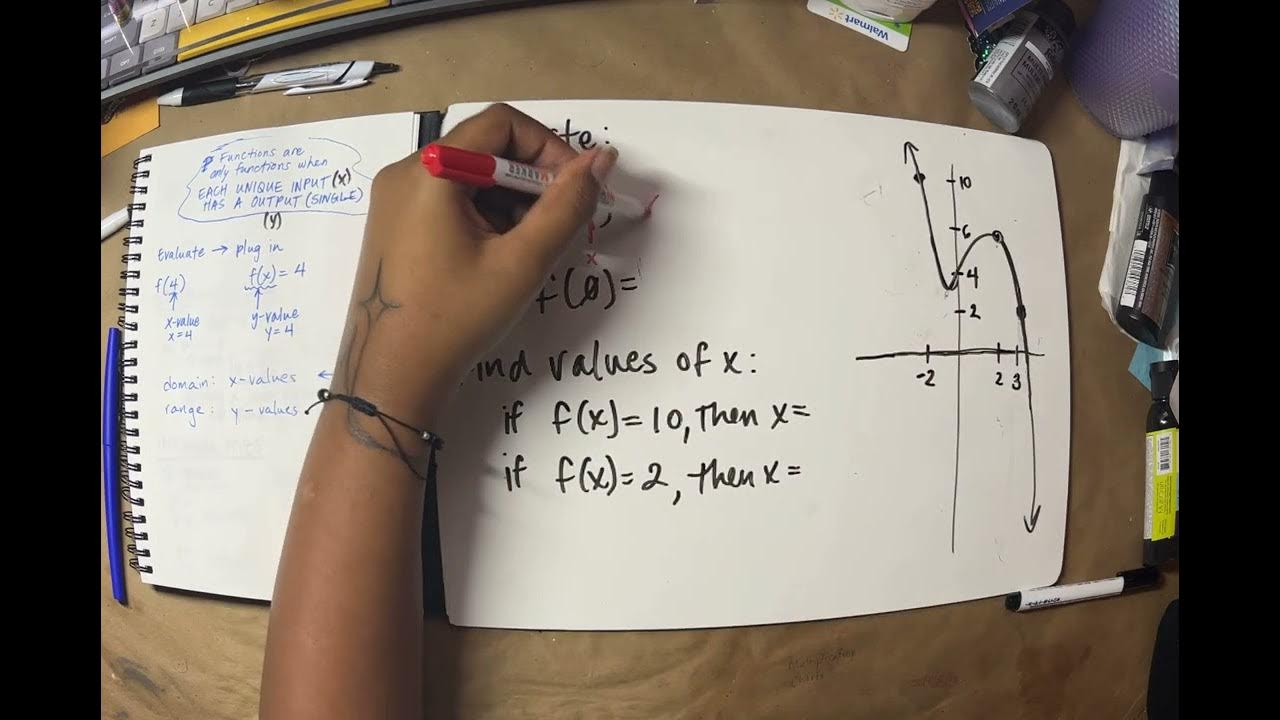 Functions are
only functions when
EACH UNIQUE INPUT (X)
HAS A OUTPUT (SINGLE)
(y)
Evaluate → plug in
f(4)
f(x) = 4
x-value
x=4
y-value
y=4
domain: x-values ←
range: y-values
x
f(0)=
values of x:
if f(x)=10, then x=
if f(x)=2, then x=
10
6
4
2
-2
2
3
Walmart